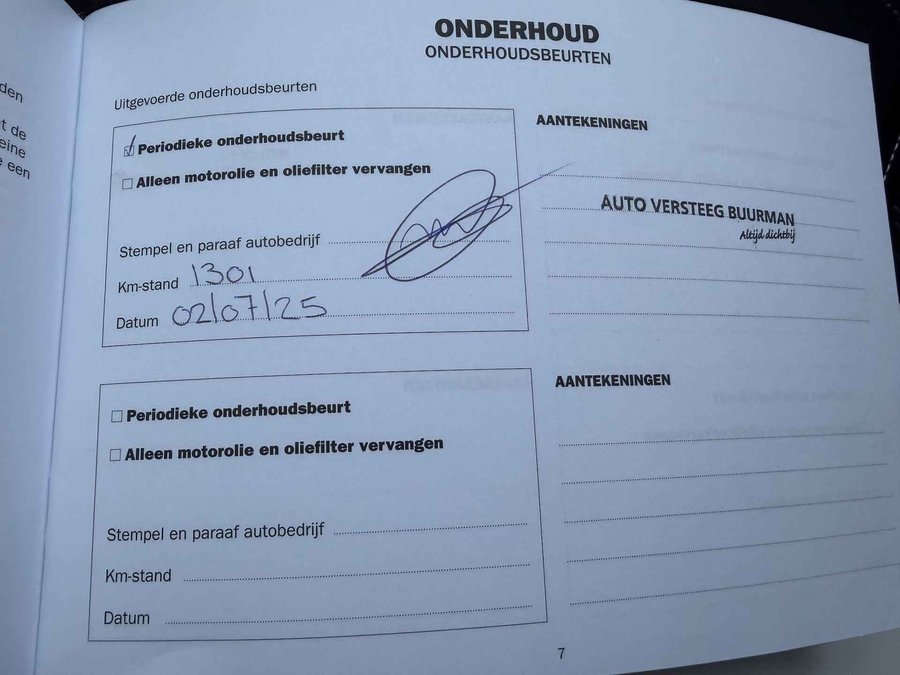 den
t de
eine
e een
ONDERHOUD
ONDERHOUDSBEURTEN
Uitgevoerde onderhoudsbeurten
Periodieke onderhoudsbeurt
Alleen motorolie en oliefilter vervangen
Stempel en paraaf autobedrijf
Km-stand 1301
Datum 02/07/25
AANTEKENINGEN
AUTO VERSTEEG BUURMAN
Altijd dichtbij
Periodieke onderhoudsbeurt
Alleen motorolie en oliefilter vervangen
Stempel en paraaf autobedrijf
Km-stand
Datum
AANTEKENINGEN
7